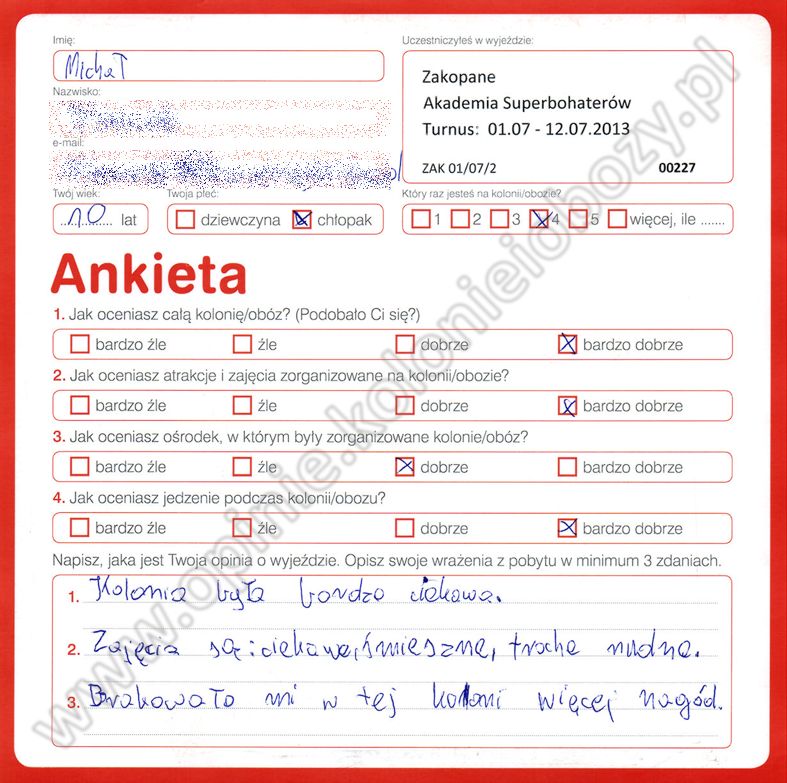 Imię:
Michał
Uczestniczyłeś w wyjeździe:
Zakopane
Akademia Superbohaterów
Turnus: 01.07 - 12.07.2013
ZAK 01/07/2 00227
Nazwisko:
e-mail:
Twój wiek:
10 lat
Twoja płeć:
dziewczyna chłopak
Który raz jesteś na kolonii/obozie?
1 2 3 4 5 więcej, ile .......
Ankieta
1. Jak oceniasz całą kolonię/obóz? (Podobało Ci się?)
bardzo źle źle dobrze bardzo dobrze
2. Jak oceniasz atrakcje i zajęcia zorganizowane na kolonii/obozie?
bardzo źle źle dobrze bardzo dobrze
3. Jak oceniasz ośrodek, w którym były zorganizowane kolonie/obóz?
bardzo źle źle dobrze bardzo dobrze
4. Jak oceniasz jedzenie podczas kolonii/obozu?
bardzo źle źle dobrze bardzo dobrze
Napisz, jaka jest Twoja opinia o wyjeździe. Opisz swoje wrażenia z pobytu w minimum 3 zdaniach.
1. Kolonia była bardzo ciekawa.
2. Zajęcia są: ciekawe, śmieszne, troche nudne.
3. Brakowało mi w tej koloni więcej nagód.
www.opinie.kolonieiobozy.pl